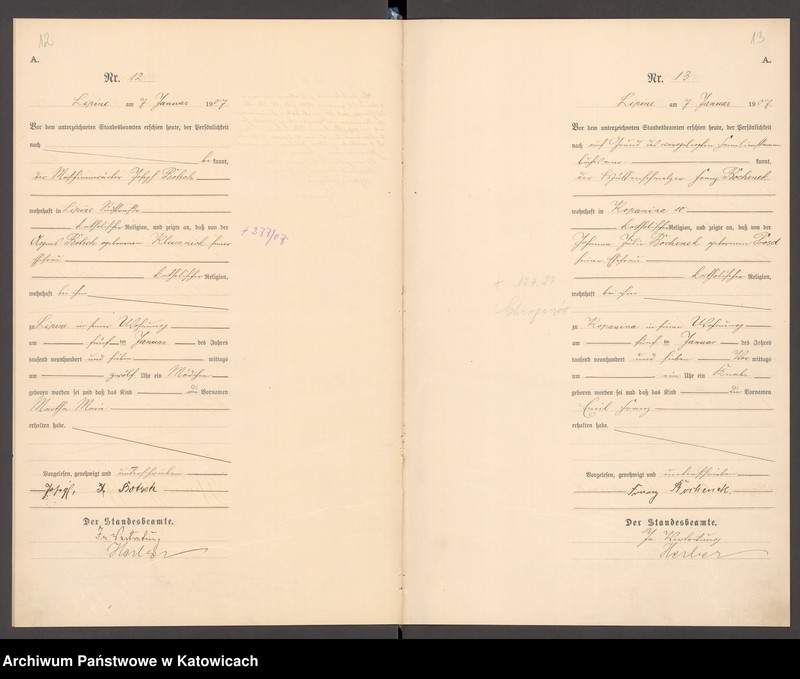 12
A.
Nr. 12
Lipine am 7 Januar 1907
Vor dem unterzeichneten Standesbeamten erschien heute, der Persönlichkeit
nach
be kannt,
der Maschinenwärter Josef Botsch
wohnhaft in Lipine
katholischer Religion, und zeigte an, daß von der
Agnes Botsch geborenen seiner
Ehefrau
katholischer Religion,
wohnhaft bei ihm
zu Lipine in seiner Wohnung
am fünften Januar des Jahres
tausend neunhundert und sieben mittags
um zwölf Uhr ein Mädchen
geboren worden sei und daß das Kind die Vornamen
Martha Maria
erhalten habe.
Vorgelesen, genehmigt und unterschrieben
Josef Botsch
Der Standesbeamte.
In Vertretung
Herber
13
A.
Nr. 13
Lipine am 7 Januar 1907
Vor dem unterzeichneten Standesbeamten erschien heute, der Persönlichkeit
nach auf Grund des vorgelegten Familienstamm
buches an kannt,
der Franz Bochenek
wohnhaft in Kopanina 10
katholischer Religion, und zeigte an, daß von der
Johanna Julie Bochenek geborenen
seiner Ehefrau
katholischer Religion,
wohnhaft bei ihm
zu Kopanina in seiner Wohnung
am fünften Januar des Jahres
tausend neunhundert und sieben Vor mittags
um ein Uhr ein Knabe
geboren worden sei und daß das Kind die Vornamen
Emil Franz
erhalten habe.
Vorgelesen, genehmigt und unterschrieben
Franz Bochenek.
Der Standesbeamte.
In Vertretung
Herber
Archiwum Państwowe w Katowicach